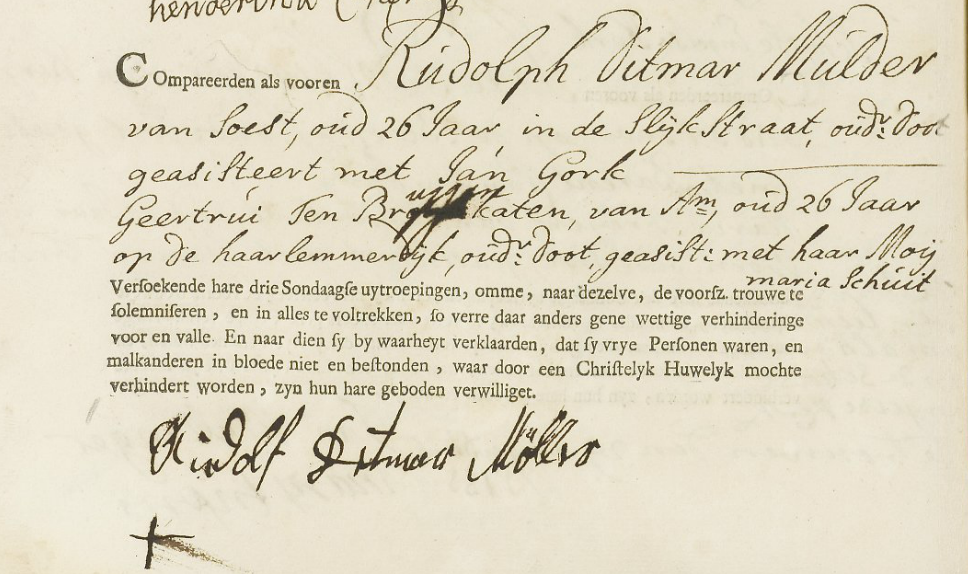 Compareerden als vooren Rudolph Ditmar Mulder
van Soest, oud 26 Jaar in de Slyk Straat, oud.rs doot
geasisteert met Jan Gork
Geertrui Ten Bruggenkaten, van Am, oud 26 Jaar
op de haarlemmerdyk, oud.rs doot, geasist: met haar Moij
maria Schuit
Versoekende hare drie Sondaagse uytroepingen, omme, naar dezelve, de voorsz. trouwe te
solemniseren, en in alles te voltrekken, so verre daar anders gene wettige verhinderinge
voor en valle. En naar dien sy by waarheyt verklaarden, dat sy vrye Personen waren, en
malkanderen in bloede niet en bestonden, waar door een Christelyk Huwelyk mochte
verhindert worden, zyn hun hare geboden verwilliget.
Rudolf Ditmar Möller